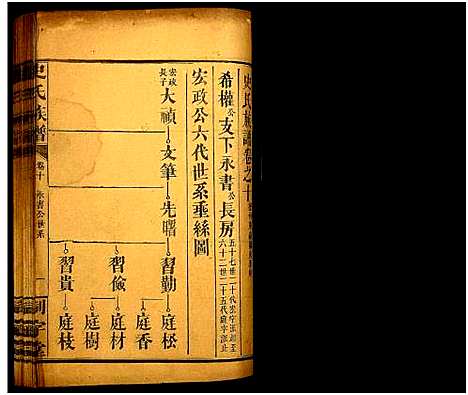 史氏族譜卷之十
希權公支下永書公長房
五十七世二十代宏字派起至
六十二世二十五代庭字派止
宏政公六代世系垂絲圖
宏政長子
大禎
文筆
先曙
習勤
習儉
習貴
庭松
庭香
庭材
庭樹
庭枝
史氏族譜
卷十
永書公世系
一